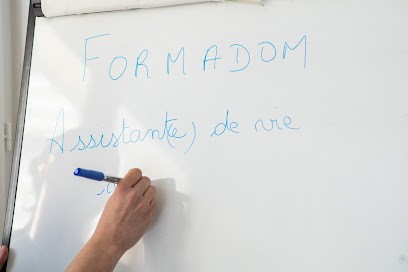 FORMADOM
Assistant(e) de vie